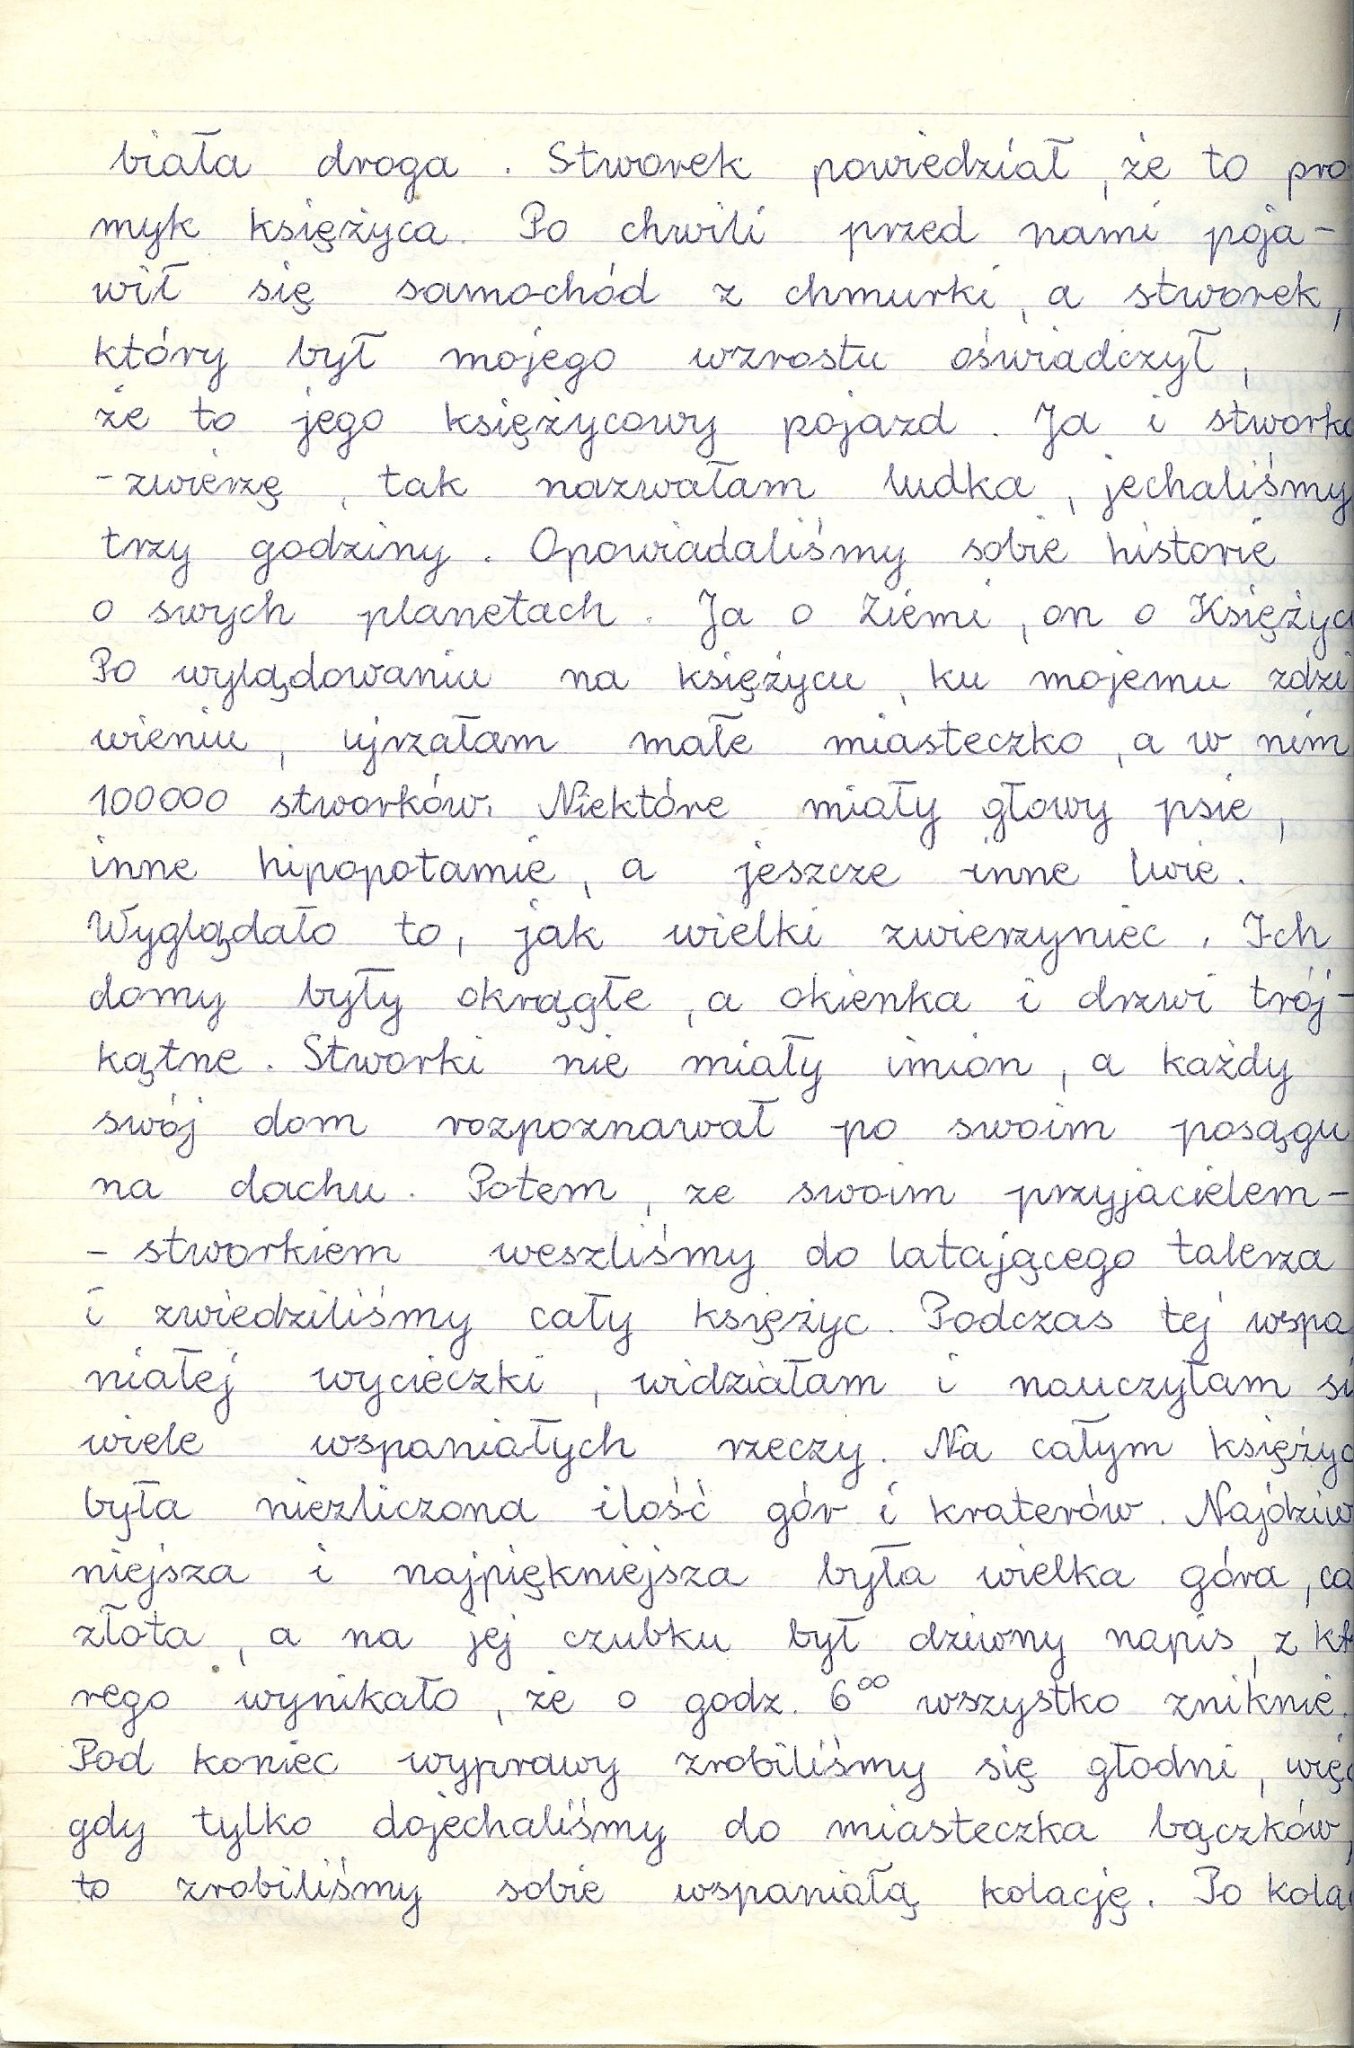 biała droga. Stworek powiedział, że to pro
myk księżyca. Po chwili przed nami poja-
wił się samochód z chmurki, a stworek,
który był mojego wzrostu oświadczył,
że to jego księżycowy pojazd. Ja i stworko
-zwierzę, tak nazwałam ludka, jechaliśmy
trzy godziny. Opowiadaliśmy sobie historie
o swych planetach. Ja o Ziemi, on o Księżyc
Po wylądowaniu na księżycu, ku mojemu zdzi
wieniu, ujrzałam małe miasteczko, a w nim
100000 stworków. Niektóre miały głowy psie,
inne hipopotamie, a jeszcze inne lwie.
Wyglądało to, jak wielki zwierzyniec. Ich
domy były okrągłe, a okienka i drzwi trój-
kątne. Stworki nie miały imion, a każdy
swój dom rozpoznawał po swoim posągu
na dachu. Potem, ze swoim przyjacielem-
-stworkiem weszliśmy do latającego talerza
i zwiedziliśmy cały księżyc. Podczas tej wspa
niałej wycieczki, widziałam i nauczyłam si
wiele wspaniałych rzeczy. Na całym księżyc
była niezliczona ilość gór i kraterów. Najdziw
niejsza i najpiękniejsza była wielka góra, ca
złota, a na jej czubku był dziwny napis, z kt
rego wynikało, że o godz. 6⁰⁰ wszystko zniknie.
Pod koniec wyprawy zrobiliśmy się głodni, więc
gdy tylko dojechaliśmy do miasteczka bączków,
to zrobiliśmy sobie wspaniałą kolację. Po kola